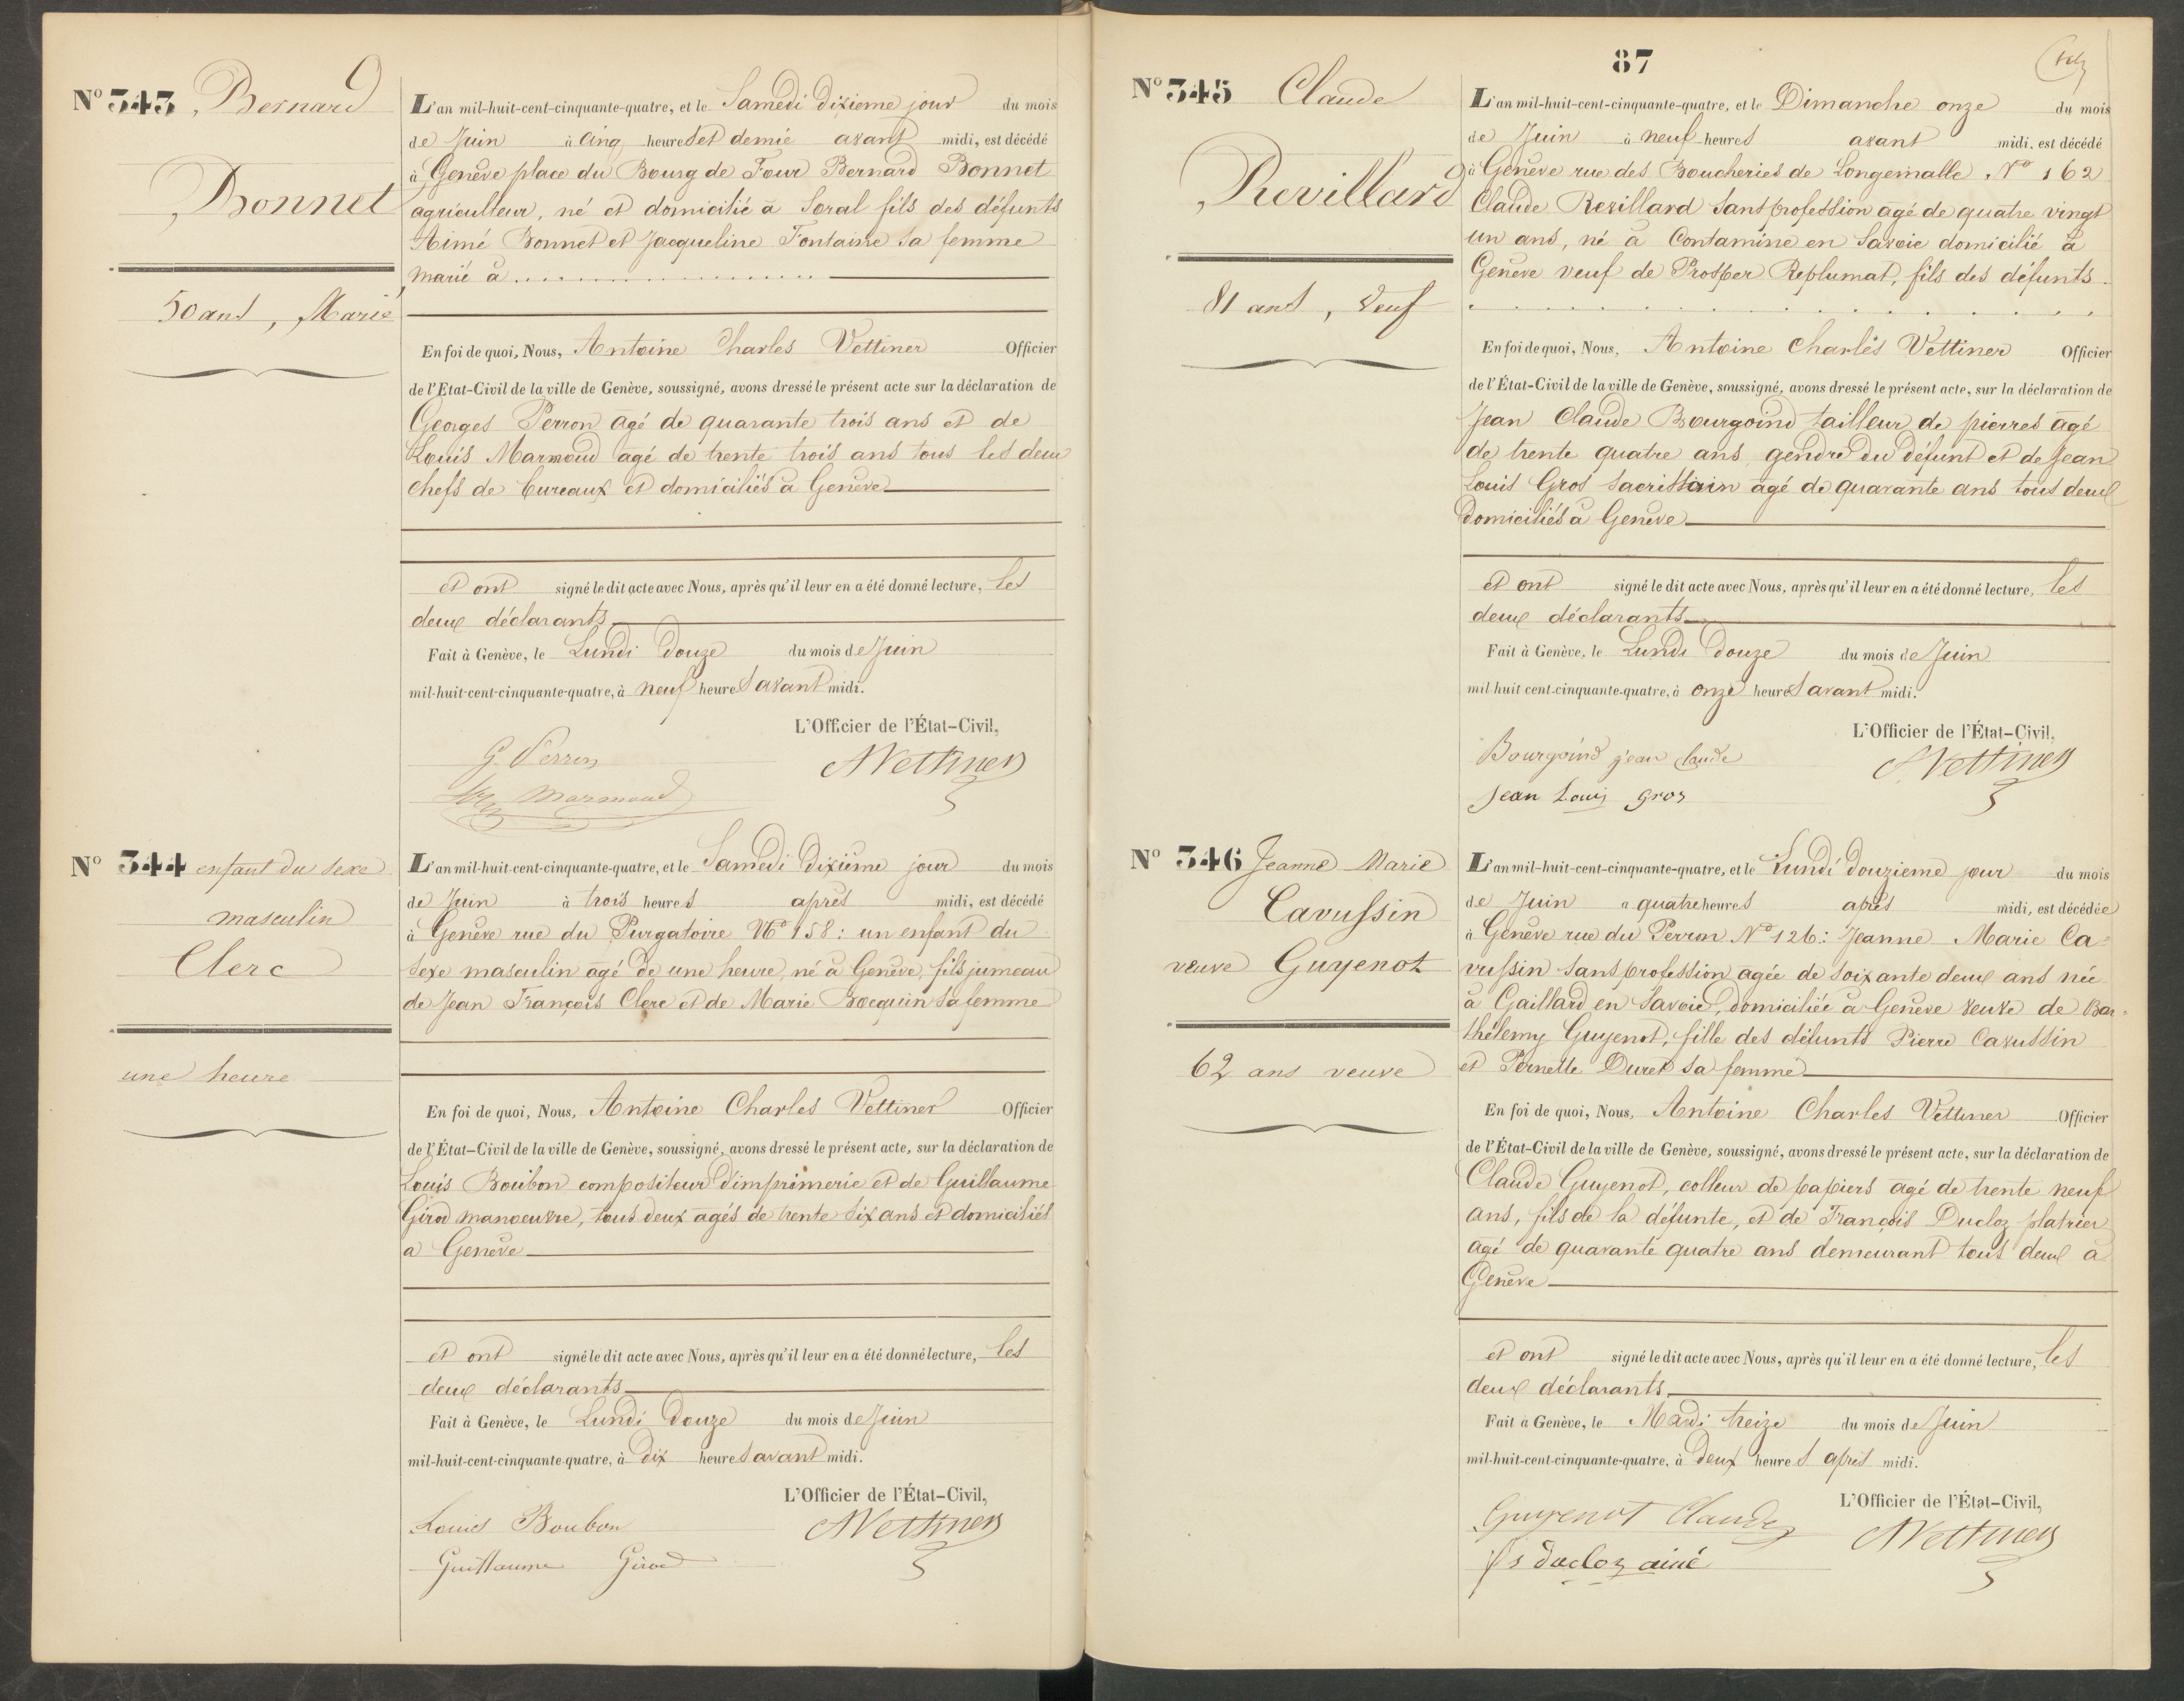 N° 343 Bernard
Bonnet
50 ans, Marié
L'an mil-huit-cent-cinquante-quatre, et le Samedi dixieme jour du mois
de Juin à cinq heures et demie avant midi, est décédé
à Genève place du Bourg de Four Bernard Bonnet
agriculteur, né et domicilié à Soral fils des défunts
Aimé Bonnet et Jacqueline Fontaine sa femme
marié à ....................
En foi de quoi, Nous, Antoine Charles Vettiner Officier
de l'Etat-Civil de la ville de Genève, soussigné, avons dressé le présent acte sur la déclaration de
Georges Perron agé de quarante trois ans et de
Louis Marmoud agé de trente trois ans tous les deux
chefs de bureaux et domiciliés à Genève
et ont signé le dit acte avec Nous, après qu'il leur en a été donné lecture, les
deux déclarants
Fait à Genève, le Lundi douze du mois de Juin
mil-huit-cent-cinquante-quatre, à neuf heures avant midi.
L'Officier de l'État-Civil,
G. Perron
Marmoud
Vettiner
N° 344 enfant du sexe
masculin
Clerc
une heure
L'an mil-huit-cent-cinquante-quatre, et le Samedi dixième jour du mois
de Juin à trois heures après midi, est décédé
à Genève rue du Purgatoire N° 158: un enfant du
sexe masculin agé de une heure, né à Genève, fils jumeau
de Jean François Clerc et de Marie Bocquin sa femme
En foi de quoi, Nous, Antoine Charles Vettiner Officier
de l'État-Civil de la ville de Genève, soussigné, avons dressé le présent acte, sur la déclaration de
Louis Boubon compositeur d'imprimerie et de Guillaume
Girod manoeuvre, tous deux agés de trente six ans et domiciliés
a Genève
et ont signé le dit acte avec Nous, après qu'il leur en a été donné lecture, les
deux déclarants
Fait à Genève, le Lundi douze du mois de Juin
mil-huit-cent-cinquante-quatre, à dix heures avant midi.
L'Officier de l'État-Civil,
Louis Boubon
Guillaume Girod
Vettiner
87
N° 345 Claude
Revillard
81 ans, Veuf
L'an mil-huit-cent-cinquante-quatre, et le Dimanche onze du mois
de Juin à neuf heures avant midi, est décédé
à Genève rue des Boucheries de Longemalle N° 162
Claude Revillard sans profession agé de quatre vingt
un ans, né à Contamine en Savoie domicilié à
Genève veuf de Prosper Replumat, fils des défunts
. . . . . . . . . . . .
En foi de quoi, Nous, Antoine Charles Vettiner Officier
de l'État-Civil de la ville de Genève, soussigné, avons dressé le présent acte, sur la déclaration de
Jean Claude Bourgoind tailleur de pierres agé
de trente quatre ans gendre du défunt et de Jean
Louis Gros sacristain agé de quarante ans tous deux
domiciliés à Genève
et ont signé le dit acte avec Nous, après qu'il leur en a été donné lecture, les
deux déclarants
Fait à Genève, le Lundi douze du mois de Juin
mil-huit cent-cinquante-quatre, à onze heures avant midi.
L'Officier de l'État-Civil,
Bourgoind jean claude
Jean Louis gros
Vettiner
N° 346 Jeanne Marie
Cavussin
veuve Guyenot
62 ans veuve
L'an mil-huit-cent-cinquante-quatre, et le Lundi douzieme jour du mois
de Juin a quatre heures après midi, est décédée
à Genève rue du Perron N° 126: Jeanne Marie Ca=
vussin sans profession agée de soixante deux ans née
à Gaillard en Savoie, domiciliée à Genève veuve de Bar=
thélemy Guyenot, fille des défunts Pierre Cavussin
et Pernette Duret sa femme
En foi de quoi, Nous, Antoine Charles Vettiner Officier
de l'État-Civil de la ville de Genève, soussigné, avons dressé le présent acte, sur la déclaration de
Claude Guyenot, colleur de papiers agé de trente neuf
ans, fils de la défunte, et de François Ducloz platrier
agé de quarante quatre ans demeurant tous deux à
Genève
et ont signé le dit acte avec Nous, après qu'il leur en a été donné lecture, les
deux déclarants
Fait à Genève, le Mardi treize du mois de Juin
mil-huit-cent-cinquante-quatre, à deux heures après midi.
L'Officier de l'État-Civil,
Guyenot Claude
fs ducloz ainé
Vettiner